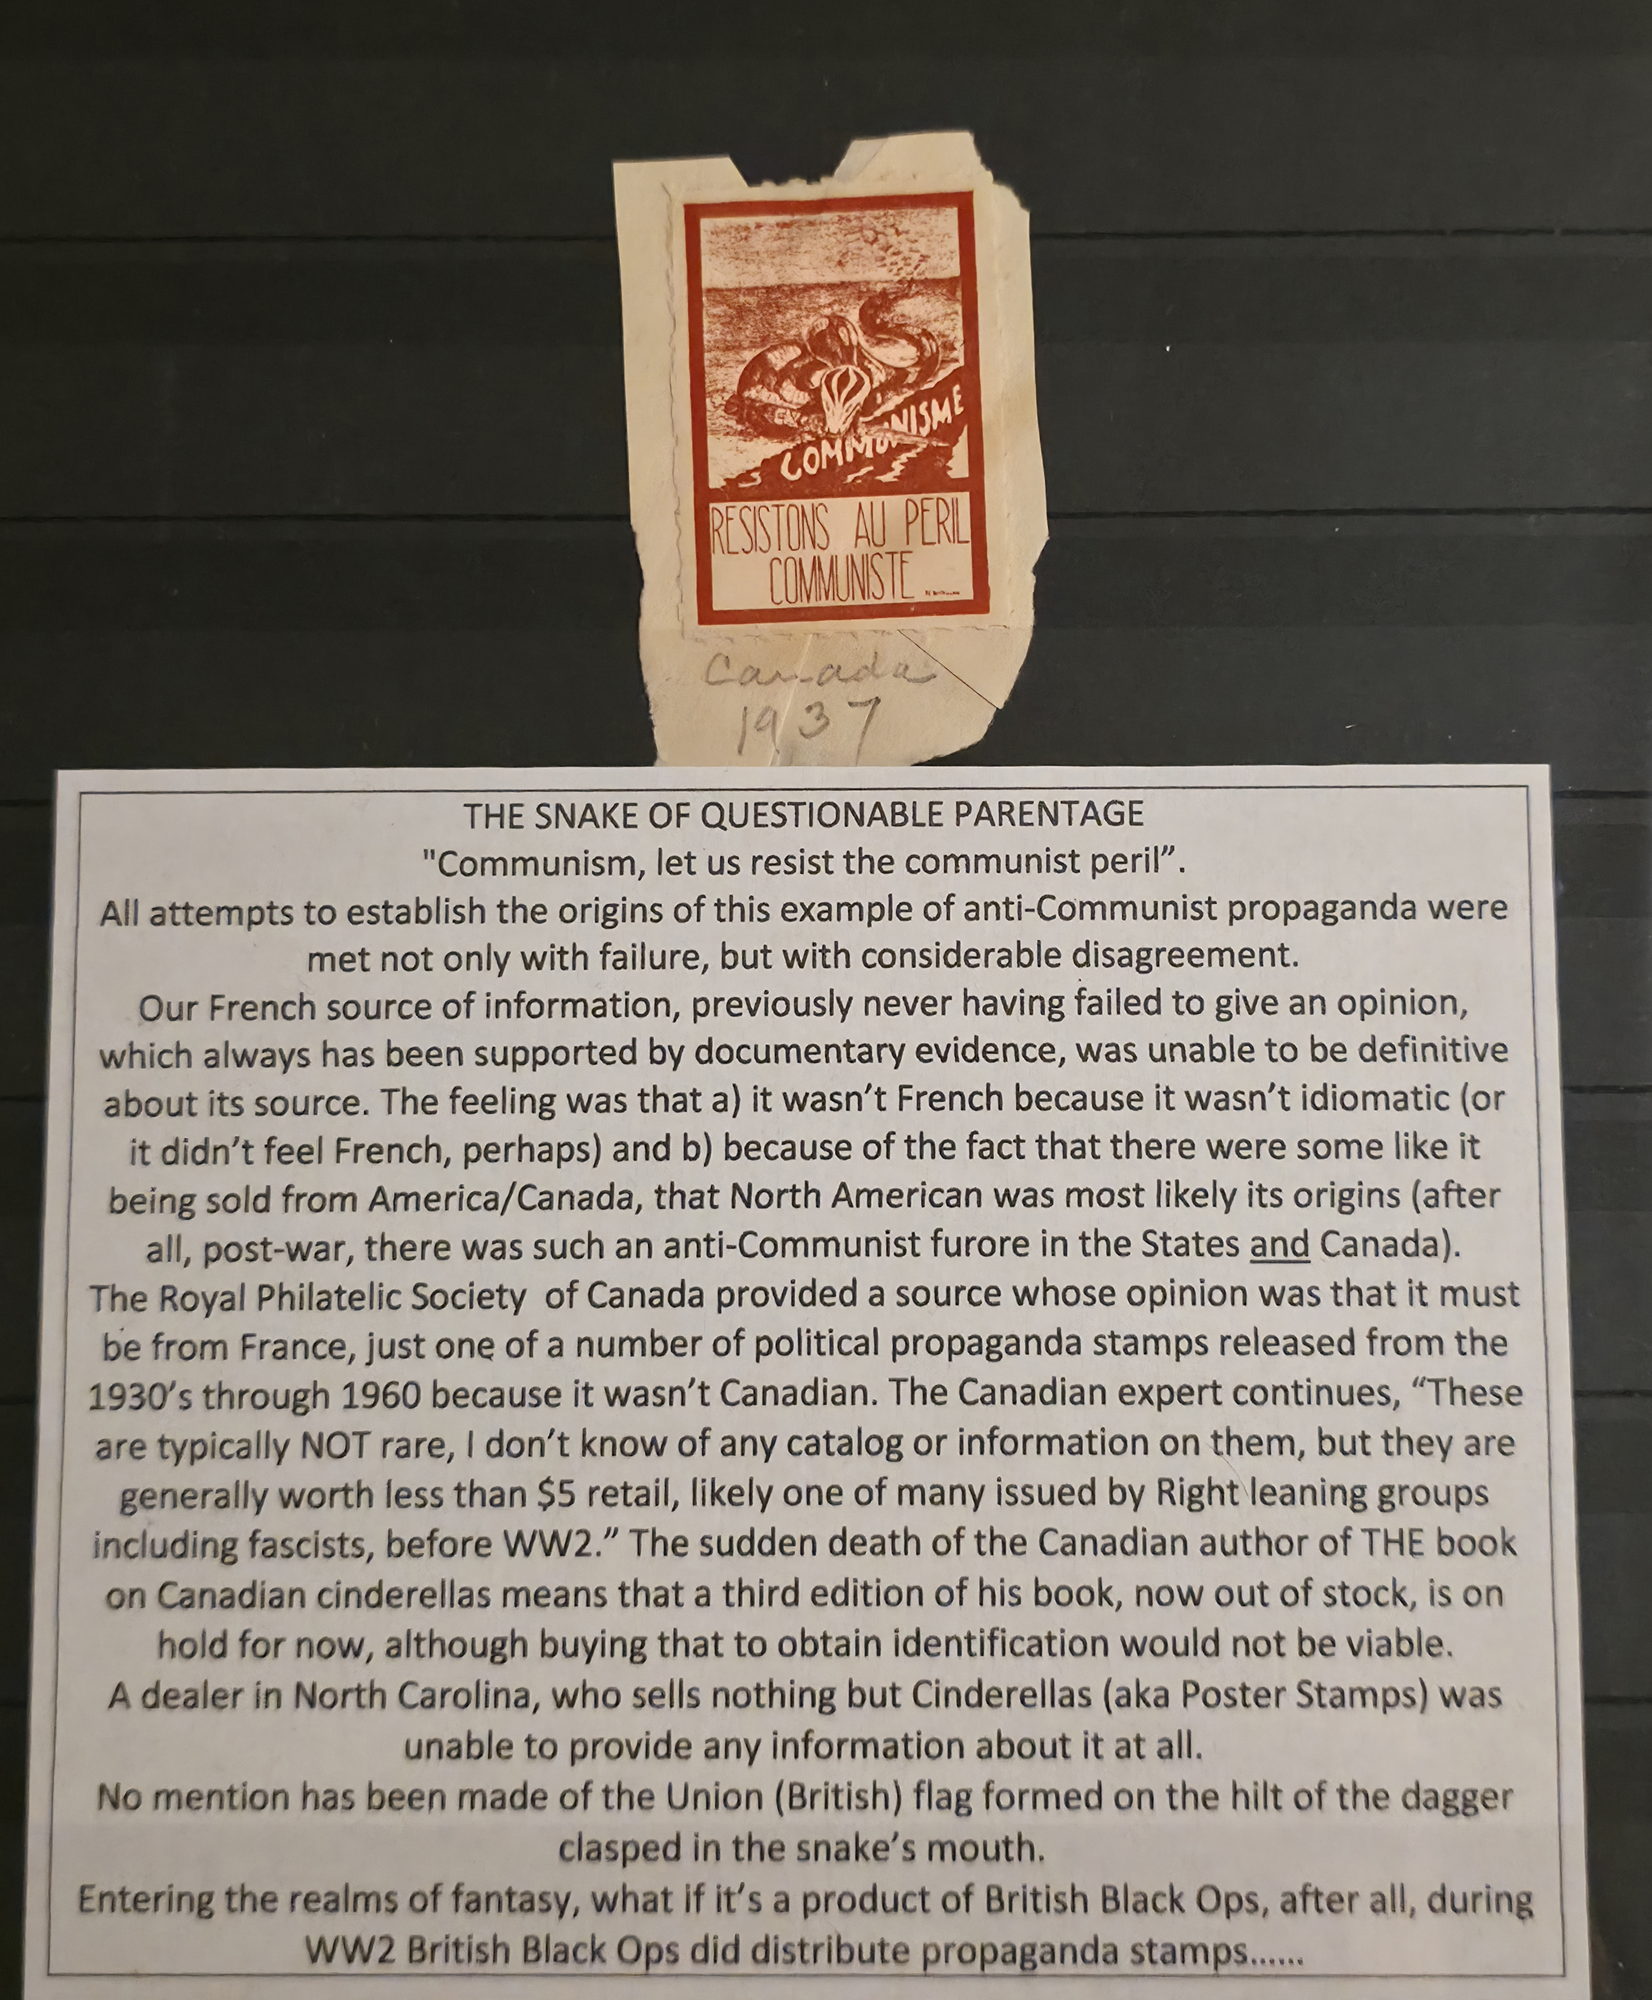 COMMUNISME
RESISTONS AU PERIL
COMMUNISTE
Canada
1937
THE SNAKE OF QUESTIONABLE PARENTAGE
"Communism, let us resist the communist peril”.
All attempts to establish the origins of this example of anti-Communist propaganda were
met not only with failure, but with considerable disagreement.
Our French source of information, previously never having failed to give an opinion,
which always has been supported by documentary evidence, was unable to be definitive
about its source. The feeling was that a) it wasn’t French because it wasn’t idiomatic (or
it didn’t feel French, perhaps) and b) because of the fact that there were some like it
being sold from America/Canada, that North American was most likely its origins (after
all, post-war, there was such an anti-Communist furore in the States and Canada).
The Royal Philatelic Society of Canada provided a source whose opinion was that it must
be from France, just one of a number of political propaganda stamps released from the
1930’s through 1960 because it wasn’t Canadian. The Canadian expert continues, “These
are typically NOT rare, I don’t know of any catalog or information on them, but they are
generally worth less than $5 retail, likely one of many issued by Right leaning groups
including fascists, before WW2.” The sudden death of the Canadian author of THE book
on Canadian cinderellas means that a third edition of his book, now out of stock, is on
hold for now, although buying that to obtain identification would not be viable.
A dealer in North Carolina, who sells nothing but Cinderellas (aka Poster Stamps) was
unable to provide any information about it at all.
No mention has been made of the Union (British) flag formed on the hilt of the dagger
clasped in the snake’s mouth.
Entering the realms of fantasy, what if it’s a product of British Black Ops, after all, during
WW2 British Black Ops did distribute propaganda stamps......